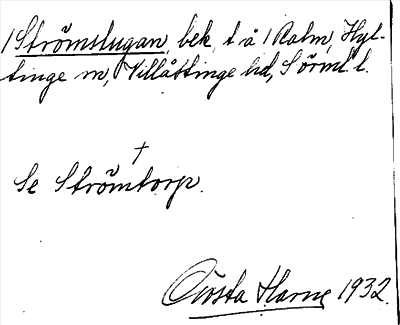 / Strömstugan, bek. t. å / Kalm, Hyl-
tinge sn, Villåttinge hd, Sörml. l.
†
Se Strömtorp.
Gösta Harne 1932.